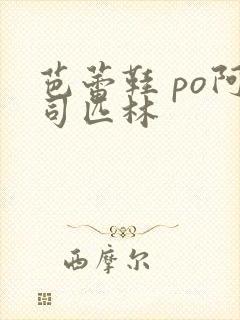 芭蕾鞋 po阿
司匹林
西摩尔